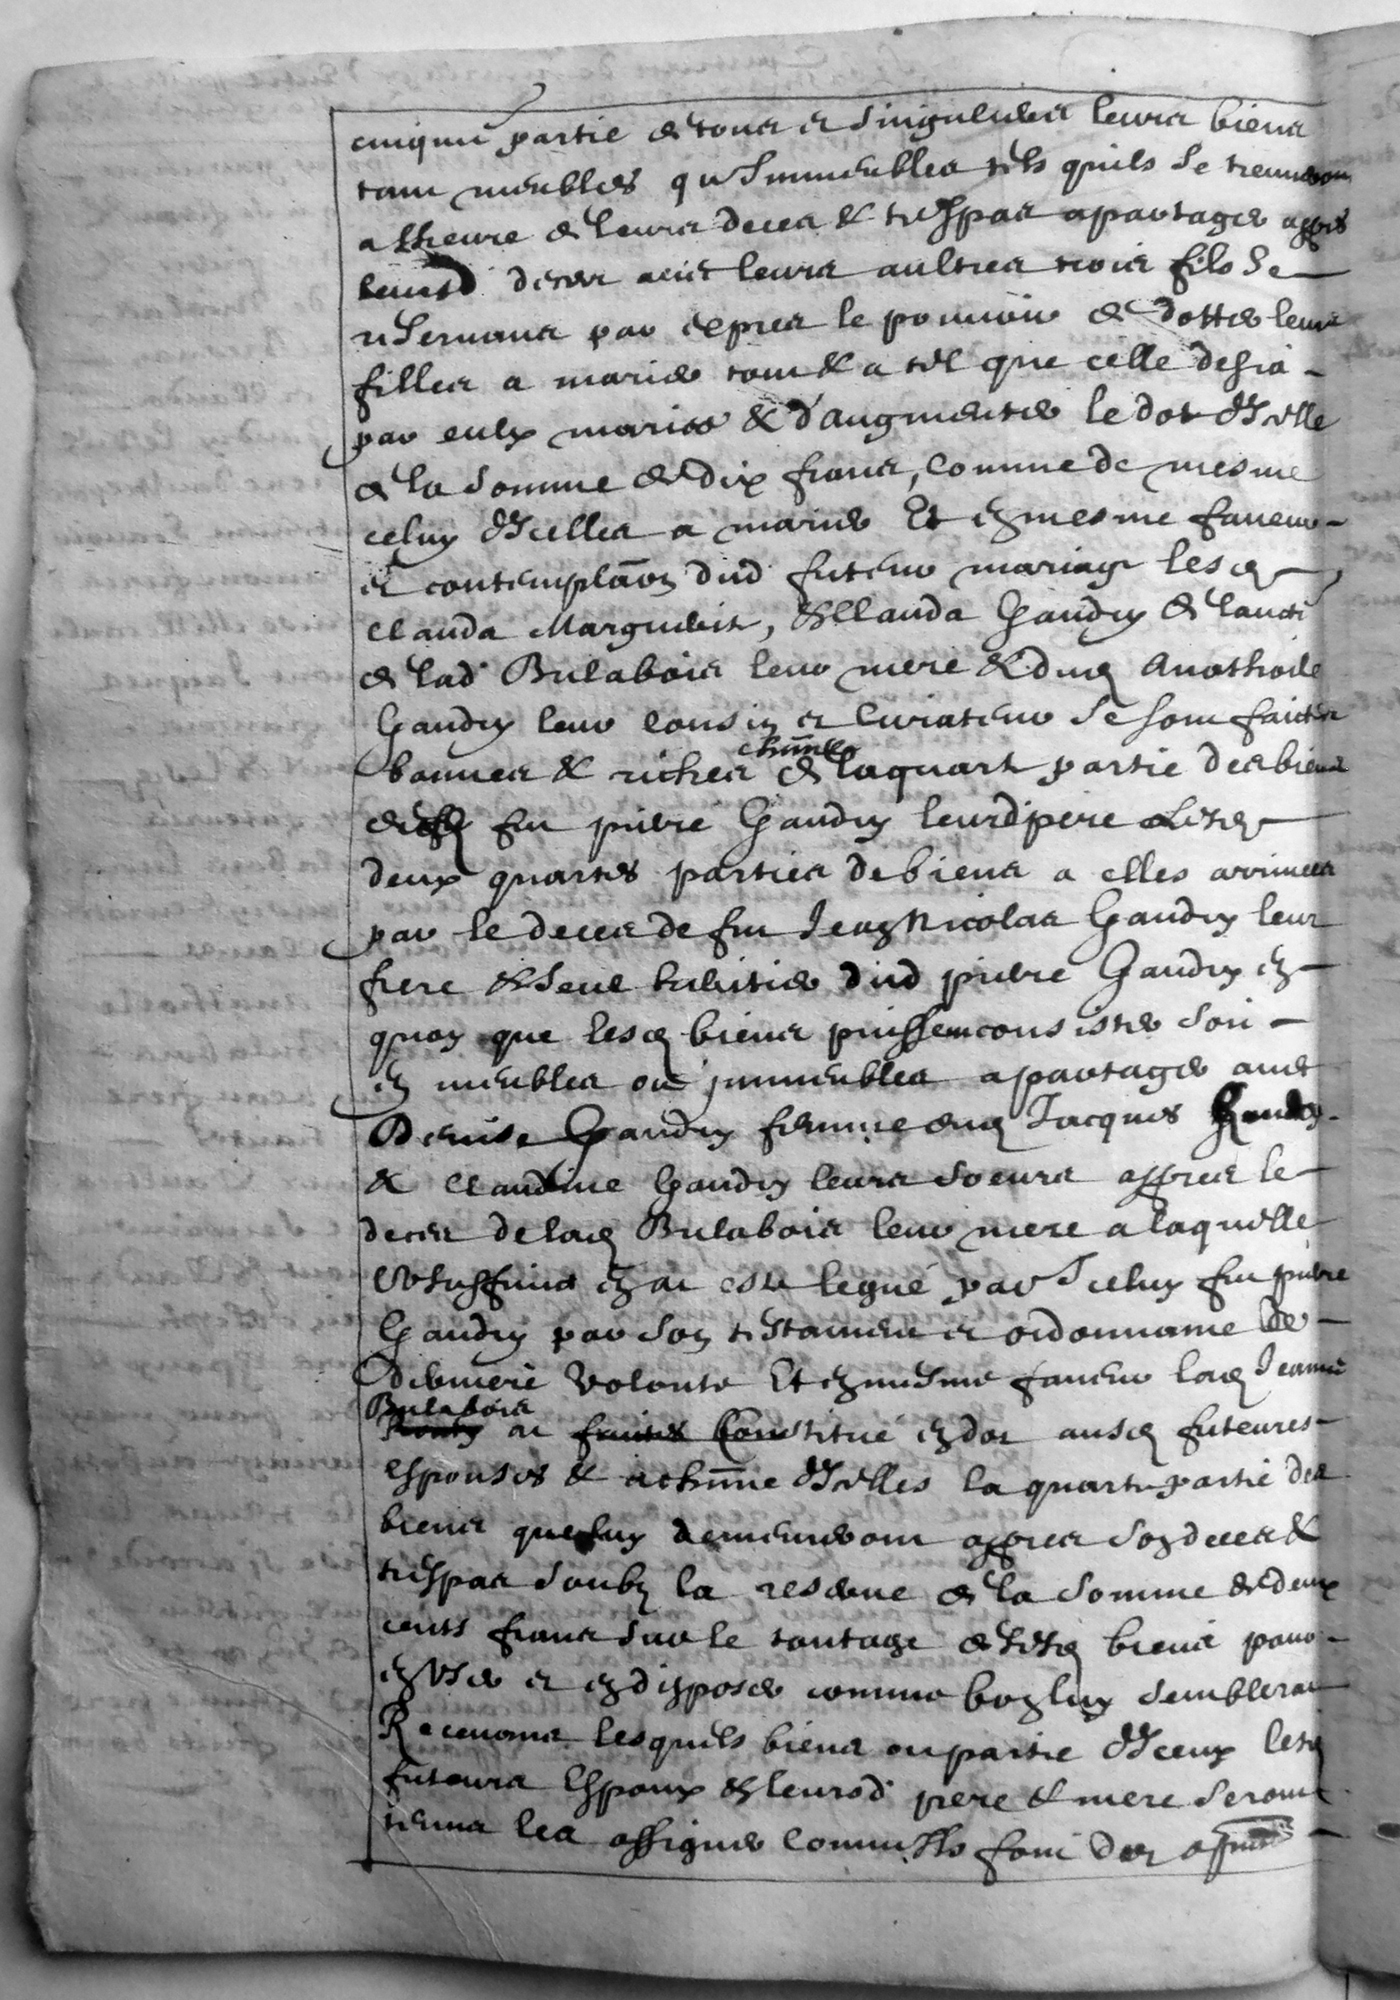 cinquie partie de tous et singuliers leurs biens
tant meubles qu'immeubles telz quils se treuveront
a lheure de leurs deces & trespas a partager appres
leursd deces avec leurs aultres trois fils se
reservans par expres le pouvoir de dotter leurs
filles a marier tout & a tel que celle desia
par eulx mariee & d'augmenter le dot d'icelle
de la somme de dix francs, comme de mesme
celuy d'icelles a marier Et en mesme faveur
et contemplaon dud futeur mariage lesd
Clauda Marguerite, & Clauda Gaudry de lauctte
de lad Bulabois leur mere & dud Anathoile
Gaudry leur cousin et curateur se sont faictes
bonnes & riches chune de la quart partie des biens
dud feu pierre Gaudry leurd pere & lesd
deux quartes parties de biens a elles arrivees
par le deces de feu Jean Nicolas Gaudry leur
frere & seul heritier dud pierre Gaudry en
quoy que lesd biens puissent consister soit
en meubles ou immeubles a partager avec
Denise Gaudry femme dud Jacques Gaudry
& Claudine Gaudry leurs soeurs appres le
deces de lad Bulabois leur mere a laquelle
l'usuffruict en at este legué par Iceluy feu pierre
Gaudry par son testament et ordonnance de
derniere volonte Et en mesme faveur lad Jeanne
Bulabois at constitué en dot ausd futeures
espouses & a chune d'icelles la quarte partie des
biens que luy demeureront appres son deces &
trespas soubz la reserve de la somme de deux
cents francs sur le toutage desd biens pour
en user et en disposer comme bon luy semblerat
Recevant lesquels biens ou partie d'Iceux lesd
futeurs Espoux & leursd pere & mere seront
tenus les assigner comme Ilz font dez